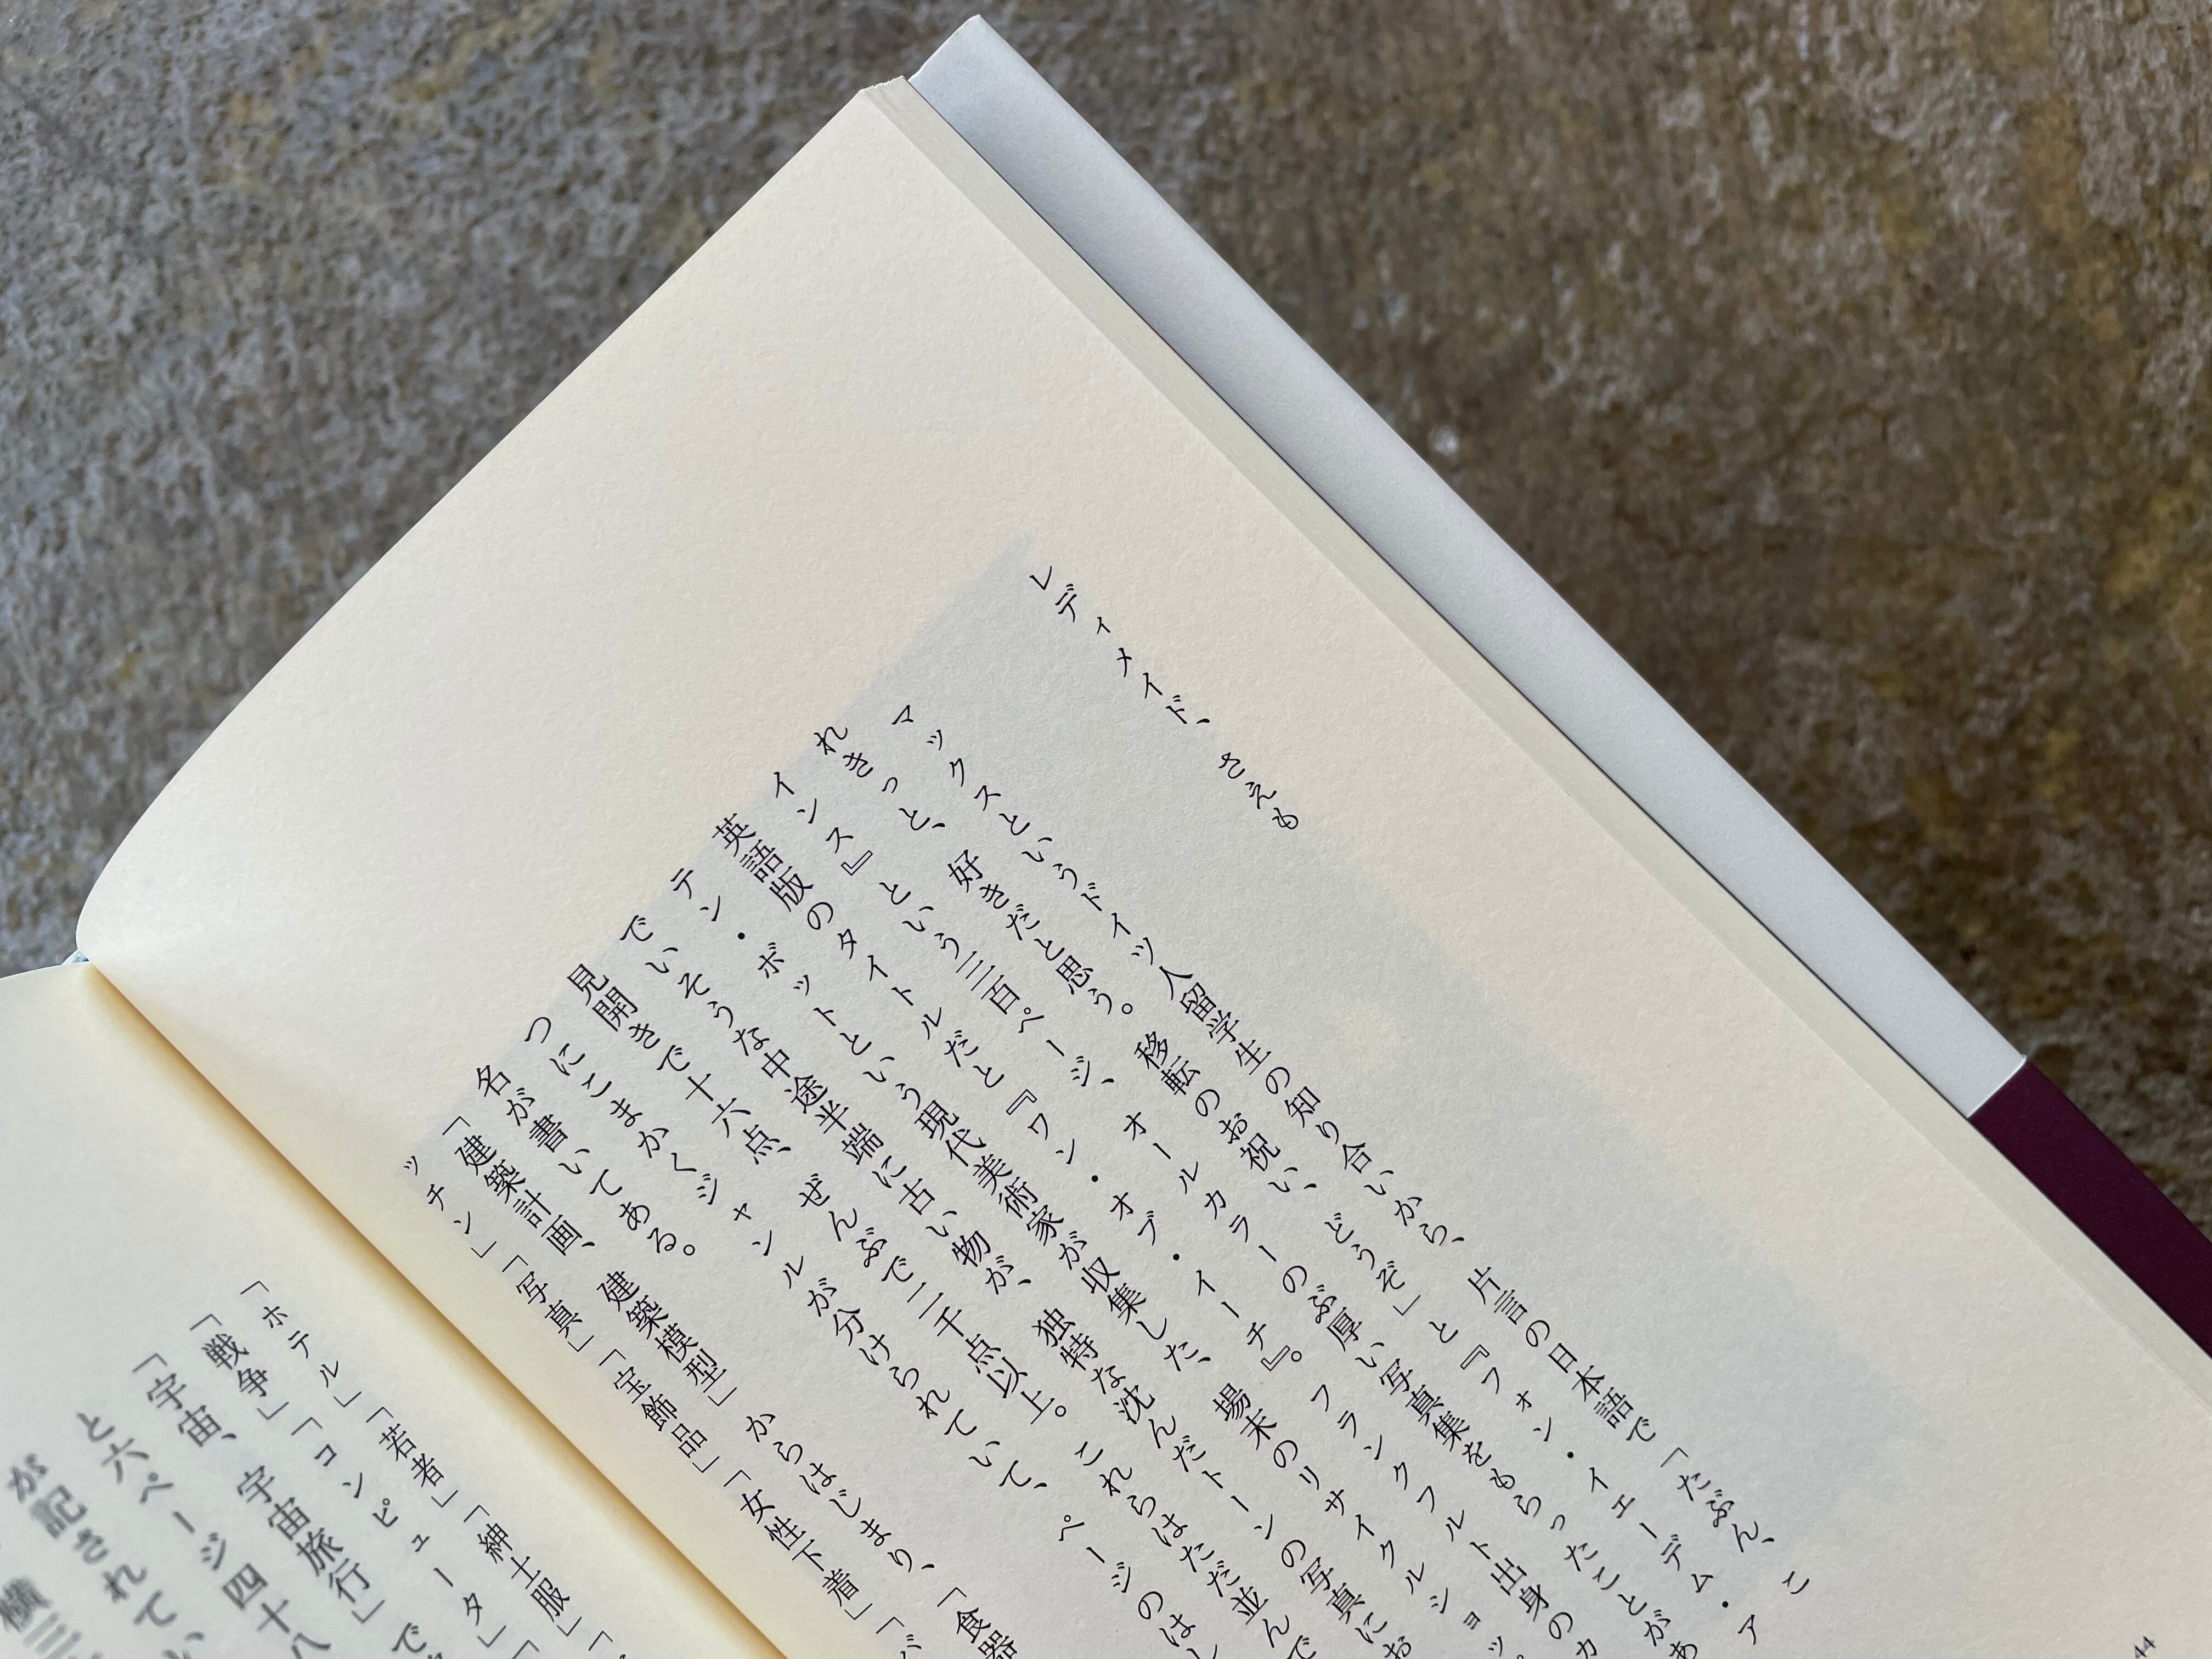 レディメイド、さえも
マックスというドイツ人留学生の知り合いから、片言の日本語で「たぶん、こ
れきっと、好きだと思う。移転のお祝い、どうぞ」と『フォン・イェーデム・ア
インス』という三百ページ、オールカラーのぶ厚い写真集をもらったことがあ
英語版のタイトルだと『ワン・オブ・イーチ』。フランクフルト出身のカ
テン・ボットという現代美術家が収集した、場末のリサイクルショッ
でいそうな中途半端に古い物が、独特な沈んだトーンの写真にお
見開きで十六点、ぜんぶで二千点以上。これらはただ並んで
つにこまかくジャンルが分けられていて、ページのはし
名が書いてある。
「建築計画、建築模型」からはじまり、「食器
ッチン」「写真」「宝飾品」「女性下着」「バ
44
「ホテル」「若者」「紳士服」「
「戦争」「コンピュータ」「
「宇宙、宇宙旅行」で
と六ページ四十八
が記されてい
横三